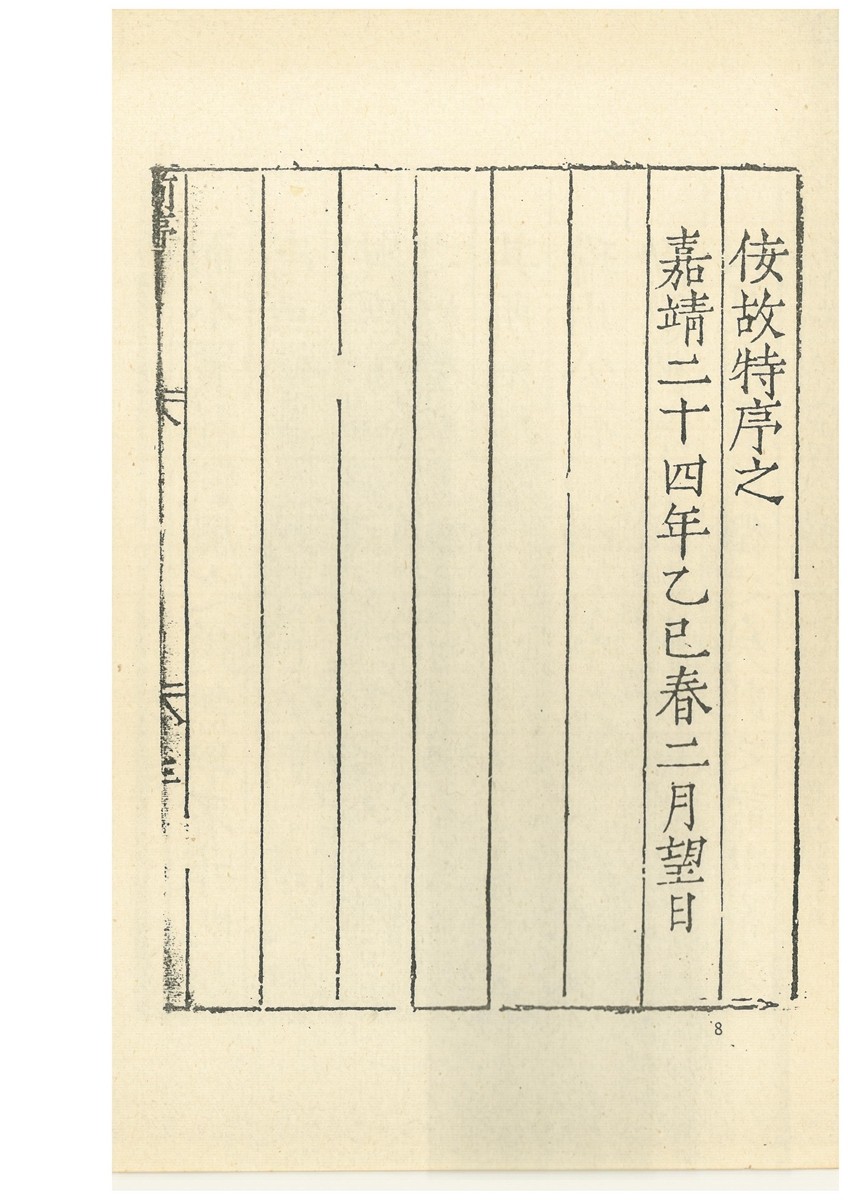 侫故特序之
嘉靖二十四年乙巳春二月望日
8